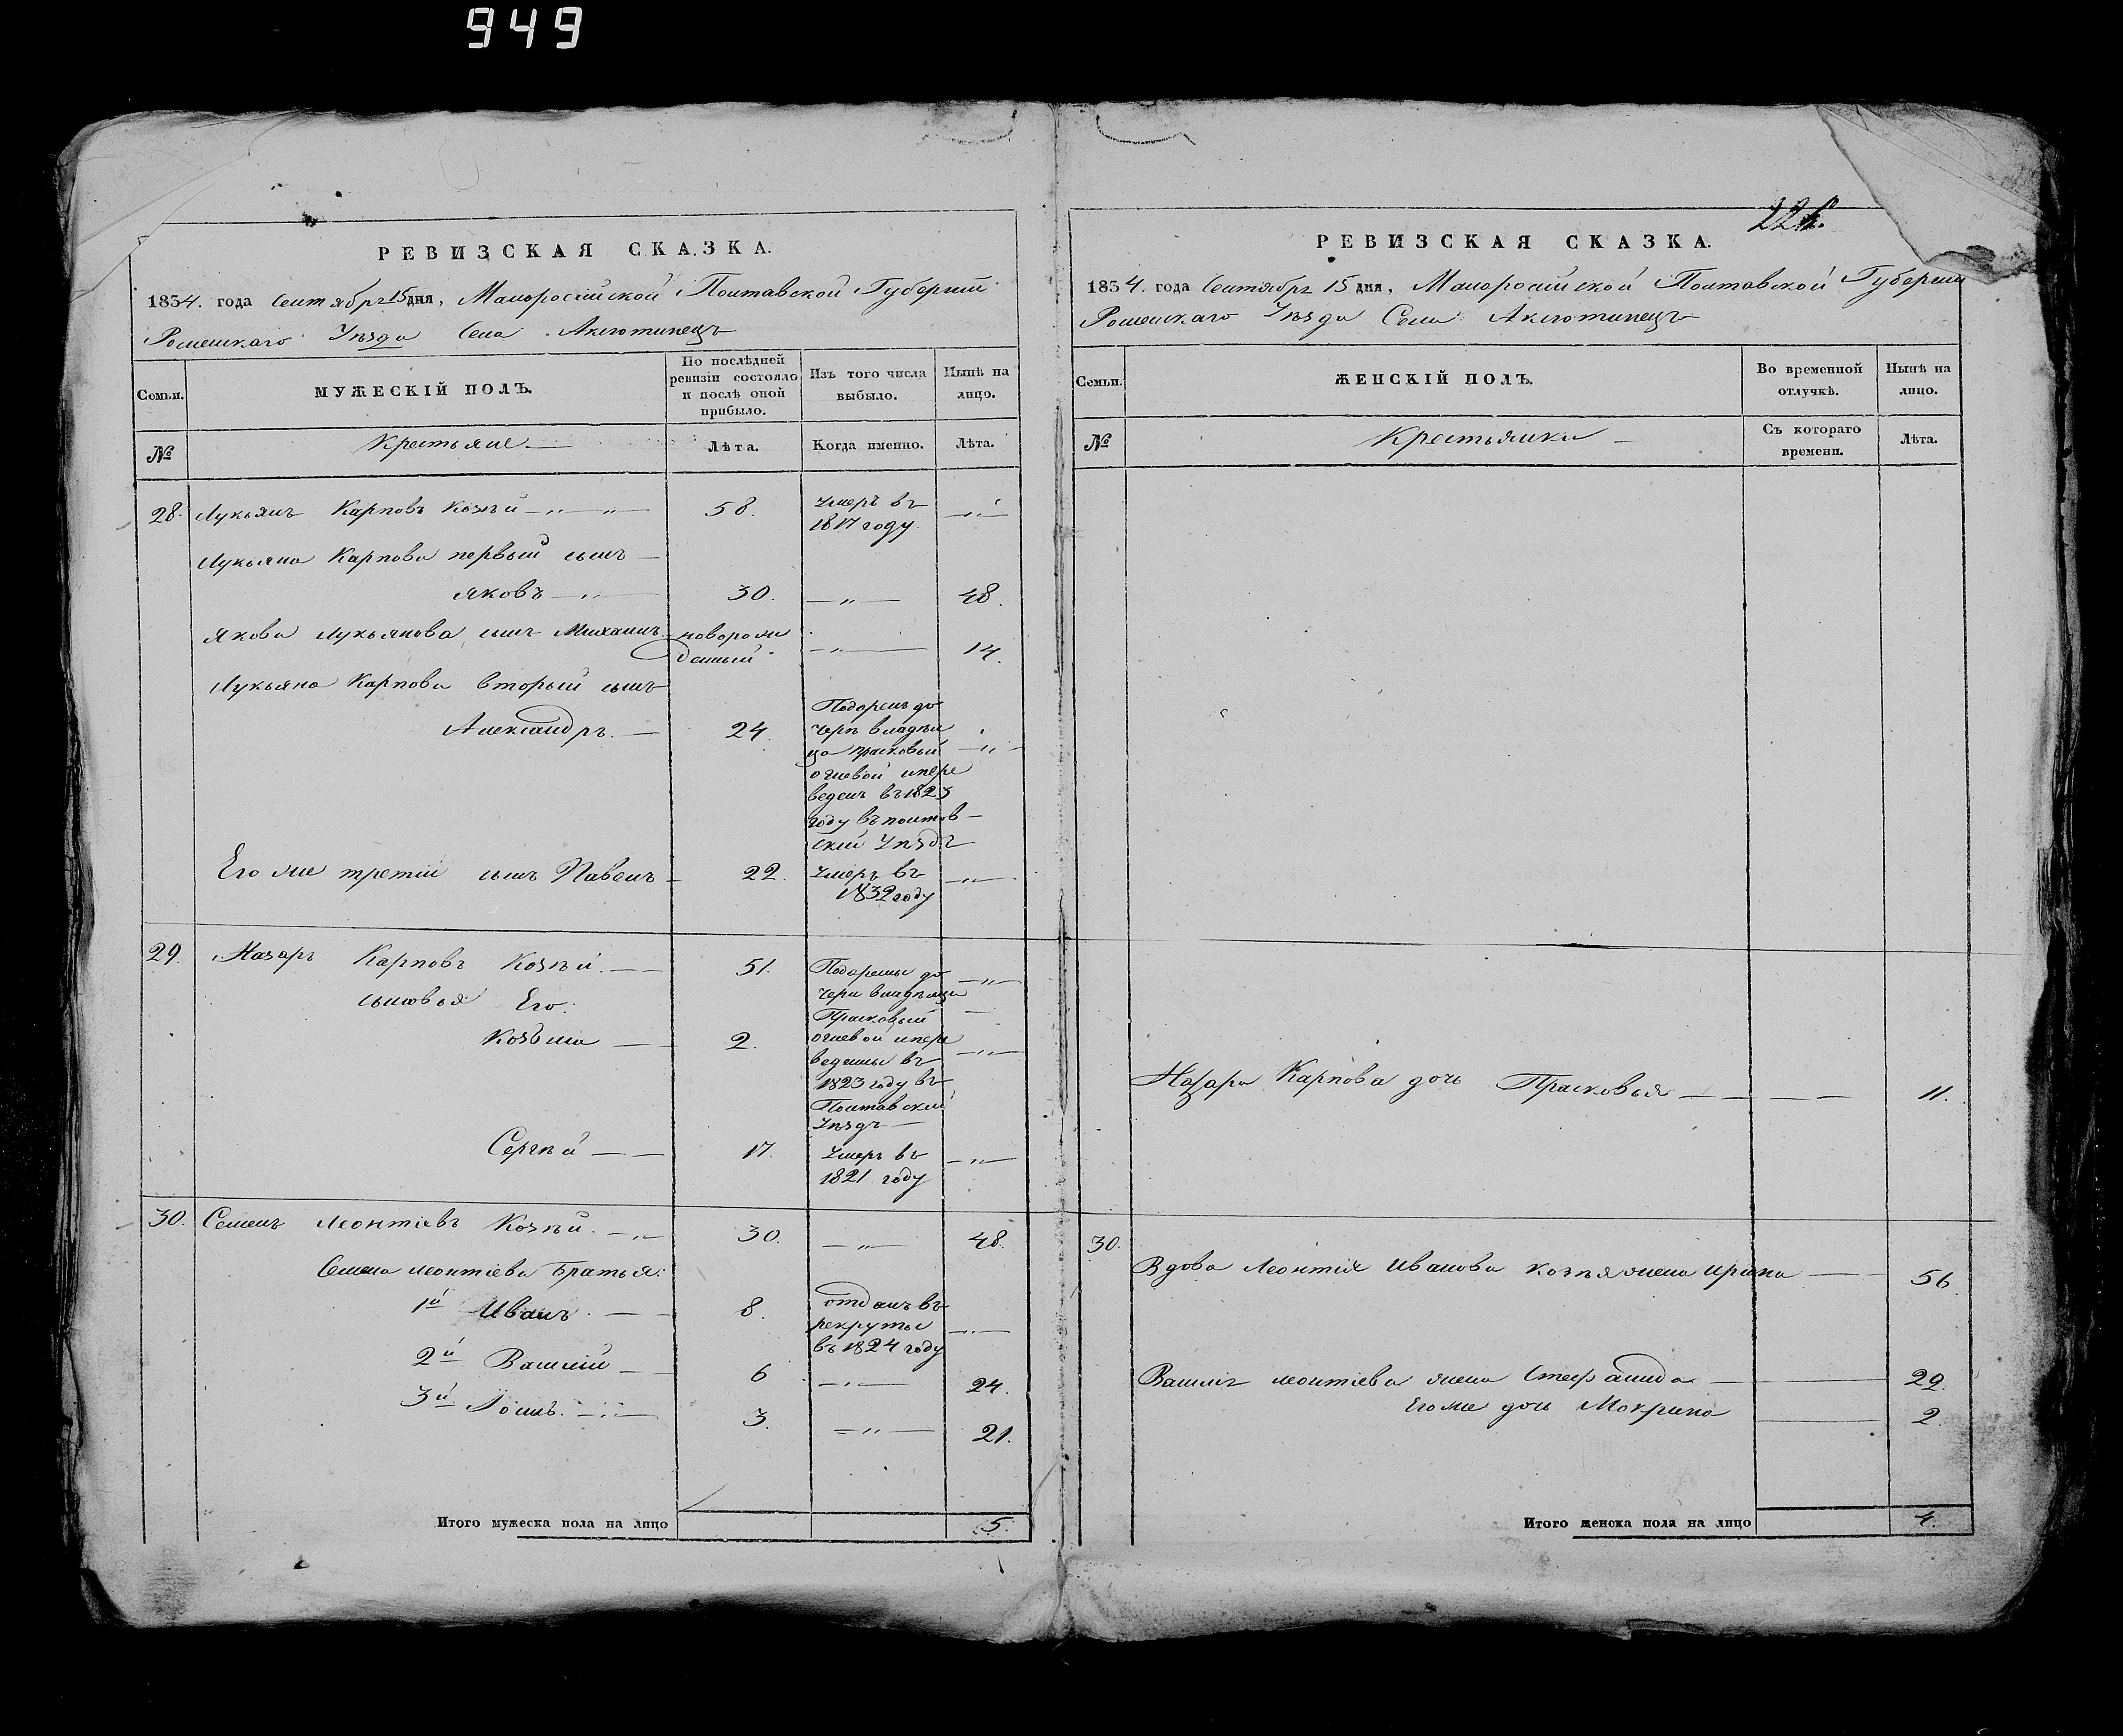 949
РЕВИЗСКАЯ СКАЗКА.
1834. года Сентября 15 дня, Малоросійской Полтавской Губерніи
Роменскаго Уѣзда Села Аксютинецъ
Семьи.
МУЖЕСКІЙ ПОЛЪ.
По послѣдней
ревизіи состояло
и послѣ оной
прибыло.
Изъ того числа
выбыло.
Нынѣ на
лицо.
№
Крестьяне
Лѣта.
Когда именно.
Лѣта.
28. Лукьянъ Карповъ Козѣй 58. Умеръ въ
1817 году
Лукьяна Карпова первый сынъ
Яковъ 30. 48.
Якова Лукьянова сынъ Михаилъ новорож
денный 14.
Лукьяна Карпова вторый сынъ
Александръ 24.
Подаренъ до
черѣ владѣл
ца Прасковьи
огневой и пере
веденъ въ 1823
году въ полтав
скій Уѣздъ
Его же третій сынъ Павелъ 22. Умеръ въ
1832 году
29. Назаръ Карповъ Козѣй 51.
сыновья Его:
Козьма 2.
Подарены до
чери владѣльца
Прасковьи
огневой и пере
ведены въ
1823 году въ
Полтавскій
Уѣздъ
Сергѣй 17. Умеръ въ
1821 году
30. Семенъ Леонтіевъ Козѣй 30. 48.
Семена Леонтіева Братья:
1й Иванъ 8. отданъ въ
рекруты
въ 1824 году
2й Василій 6 24.
3й 3. 21.
Итого мужеска пола на лицо 5.
226.
РЕВИЗСКАЯ СКАЗКА.
1834. года Сентября 15 дня, Малоросійской Полтавской Губерніи
Роменскаго Уѣзда Села Аксютинецъ
Семьи.
ЖЕНСКІЙ ПОЛЪ.
Во временной
отлучкѣ.
Нынѣ на
лицо.
№
Крестьянки
Съ котораго
времени.
Лѣта.
Назара Карпова дочь Прасковья 11.
30. Вдова Леонтія Иванова Козѣя жена Ирина 56
Василія Леонтіева жена Стефанида 29.
Его же дочь Мокрина 2.
Итого женска пола на лицо 4.